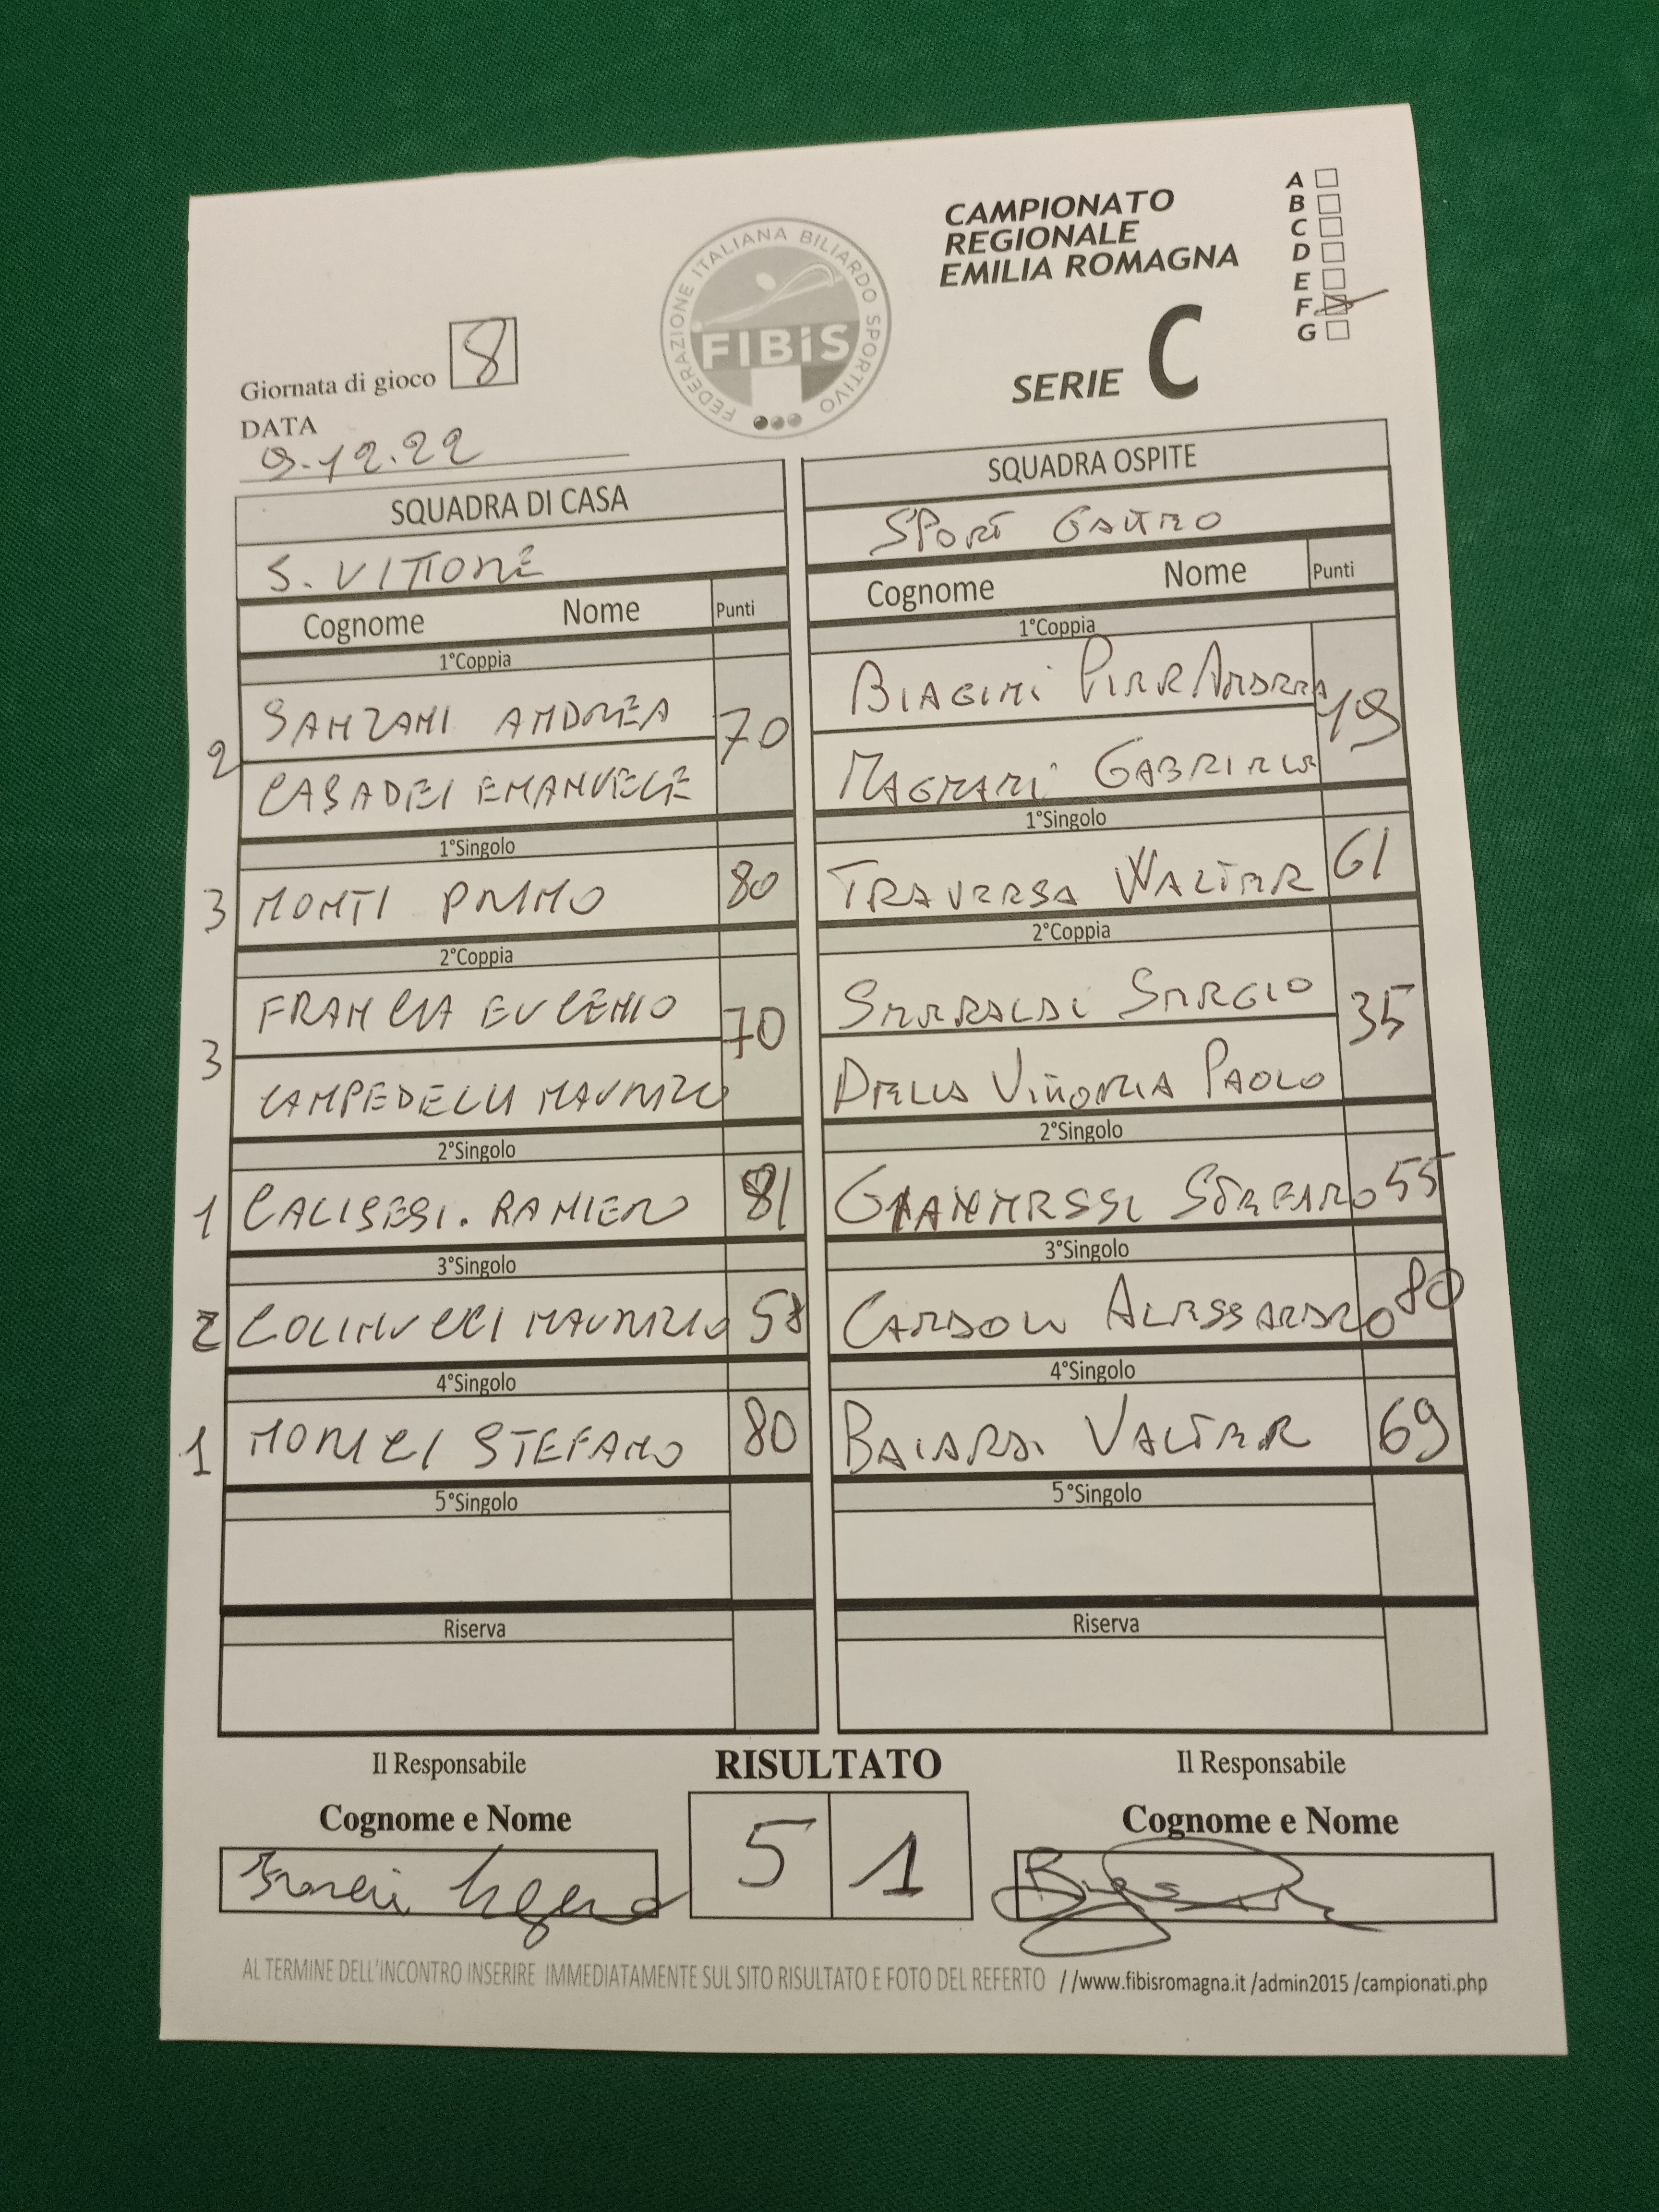 CAMPIONATO
REGIONALE
EMILIA ROMAGNA
SERIE C
A
B
C
D
E
F
G
FEDERAZIONE ITALIANA BILIARDO SPORTIVO
FIBiS
Giornata di gioco 8
DATA
9.12.22
SQUADRA DI CASA
SQUADRA OSPITE
S. VITTORE
SPORT GATTEO
Cognome Nome Punti
Cognome Nome Punti
1°Coppia
1°Coppia
SANZANI ANDREA 70
BIAGINI PIERANDREA 49
2
CASADEI EMANUELE
MAGNANI GABRIELE
1°Singolo
1°Singolo
3 MONTI PRIMO 80
TRAVERSA WALTER 61
2°Coppia
2°Coppia
FRANCIA EUGENIO 70
SERRALDI SERGIO 35
3
CAMPEDELLI MAURIZIO
DELLA VITTORIA PAOLO
2°Singolo
2°Singolo
1 CALISESI. RANIERO 81
GIANNESSI STEFANO 55
3°Singolo
3°Singolo
2 COLINUCCI MAURIZIO 58
CANDOLI ALESSANDRO 80
4°Singolo
4°Singolo
1 MORICI STEFANO 80
BAIARDI VALTER 69
5°Singolo
5°Singolo
Riserva
Riserva
Il Responsabile
RISULTATO
Il Responsabile
Cognome e Nome
Cognome e Nome
5 1
AL TERMINE DELL'INCONTRO INSERIRE IMMEDIATAMENTE SUL SITO RISULTATO E FOTO DEL REFERTO //www.fibisromagna.it /admin2015 /campionati.php